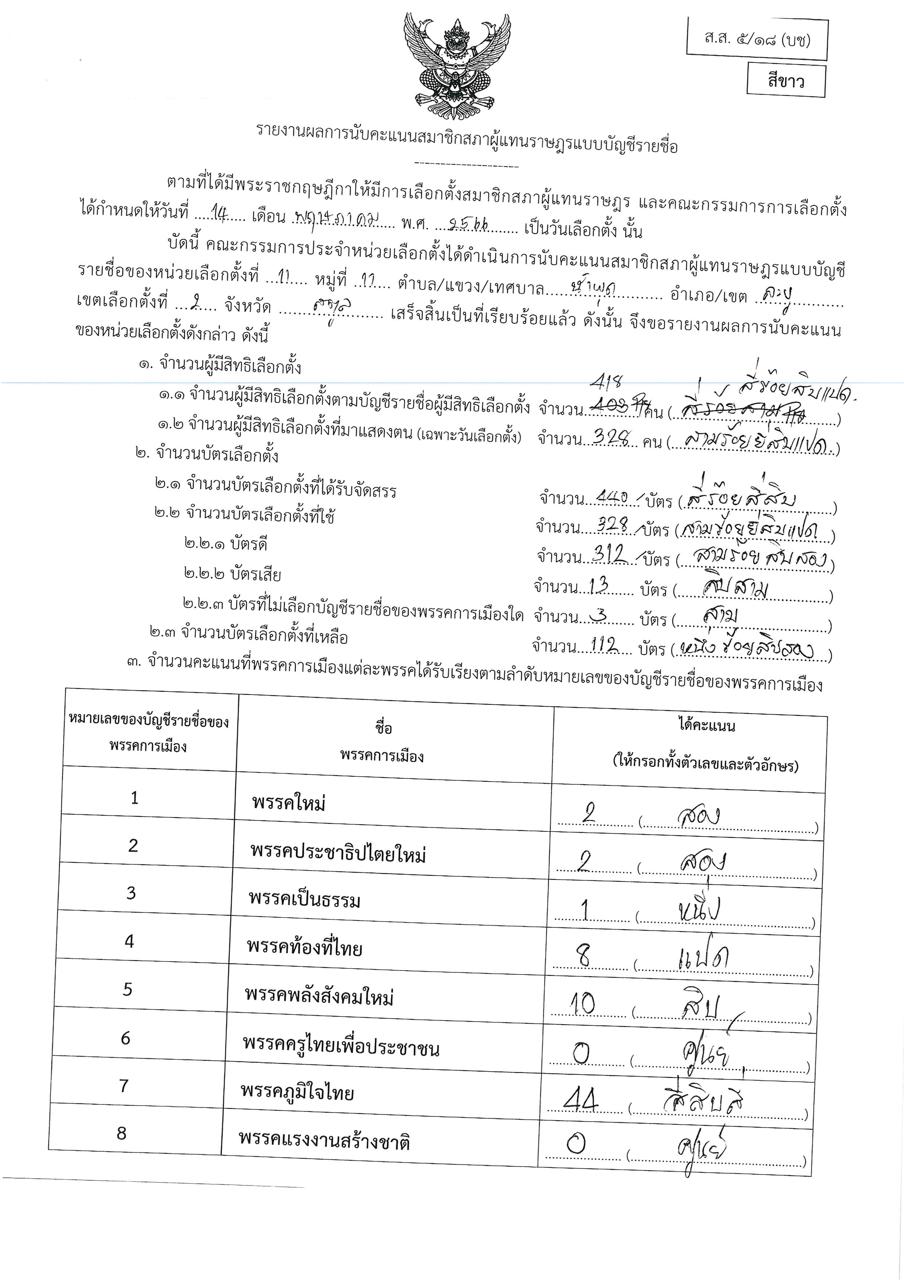 ส.ส. ๕/๑๘ (บช)
สีขาว
รายงานผลการนับคะแนนสมาชิกสภาผู้แทนราษฎรแบบบัญชีรายชื่อ
--------------------
ตามที่ได้มีพระราชกฤษฎีกาให้มีการเลือกตั้งสมาชิกสภาผู้แทนราษฎร และคณะกรรมการการเลือกตั้ง
ได้กำหนดให้วันที่ ....14.... เดือน พฤษภาคม พ.ศ. ..2566.......... เป็นวันเลือกตั้ง นั้น
บัดนี้ คณะกรรมการประจำหน่วยเลือกตั้งได้ดำเนินการนับคะแนนสมาชิกสภาผู้แทนราษฎรแบบบัญชี
รายชื่อของหน่วยเลือกตั้งที่ ..11.... หมู่ที่ .11... ตำบล/แขวง/เทศบาล.....น้ำผุด........... อำเภอ/เขต ..ละงู............
เขตเลือกตั้งที่ ...2.... จังหวัด .......สตูล........ เสร็จสิ้นเป็นที่เรียบร้อยแล้ว ดังนั้น จึงขอรายงานผลการนับคะแนน
ของหน่วยเลือกตั้งดังกล่าว ดังนี้
๑. จำนวนผู้มีสิทธิเลือกตั้ง
418 สี่ร้อยสิบแปด
๑.๑ จำนวนผู้มีสิทธิเลือกตั้งตามบัญชีรายชื่อผู้มีสิทธิเลือกตั้ง จำนวน..403.. คน (..สี่ร้อยสาม..)
๑.๒ จำนวนผู้มีสิทธิเลือกตั้งที่มาแสดงตน (เฉพาะวันเลือกตั้ง) จำนวน..328... คน (..สามร้อยยี่สิบแปด..)
๒. จำนวนบัตรเลือกตั้ง
๒.๑ จำนวนบัตรเลือกตั้งที่ได้รับจัดสรร จำนวน...440../บัตร (สี่ร้อยสี่สิบ......)
๒.๒ จำนวนบัตรเลือกตั้งที่ใช้ จำนวน...328../บัตร (สามร้อยยี่สิบแปด..)
๒.๒.๑ บัตรดี จำนวน...312../บัตร (...สามร้อยสิบสอง)
๒.๒.๒ บัตรเสีย จำนวน..13...... บัตร (.....สิบสาม..........)
๒.๒.๓ บัตรที่ไม่เลือกบัญชีรายชื่อของพรรคการเมืองใด จำนวน..3....... บัตร (.....สาม...............)
๒.๓ จำนวนบัตรเลือกตั้งที่เหลือ จำนวน..112.... บัตร (.หนึ่งร้อยสิบสอง...)
๓. จำนวนคะแนนที่พรรคการเมืองแต่ละพรรคได้รับเรียงตามลำดับหมายเลขของบัญชีรายชื่อของพรรคการเมือง
หมายเลขของบัญชีรายชื่อของ
พรรคการเมือง
ชื่อ
พรรคการเมือง
ได้คะแนน
(ให้กรอกทั้งตัวเลขและตัวอักษร)
1 พรรคใหม่ 2 (สอง)
2 พรรคประชาธิปไตยใหม่ 2 (สอง)
3 พรรคเป็นธรรม 1 (หนึ่ง)
4 พรรคท้องที่ไทย 8 (แปด)
5 พรรคพลังสังคมใหม่ 10 (สิบ)
6 พรรคครูไทยเพื่อประชาชน 0 (ศูนย์)
7 พรรคภูมิใจไทย 44 (สี่สิบสี่)
8 พรรคแรงงานสร้างชาติ 0 (ศูนย์)